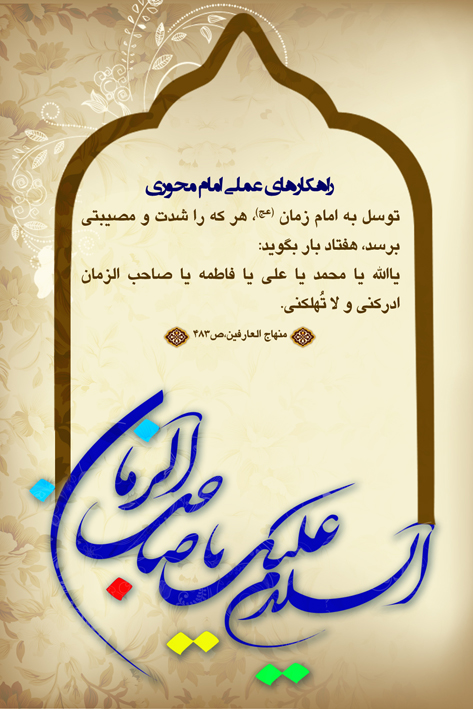 راهکارهای عملی امام محوری
توسل به امام زمان (عج)، هر که را شدت و مصیبتی
برسد، هفتاد بار بگوید:
یاالله یا محمد یا علی یا فاطمه یا صاحب الزمان
ادرکنی و لا تُهلکنی.
منهاج العارفین،ص۴۸۳
السلام علیک یا صاحب الزمان